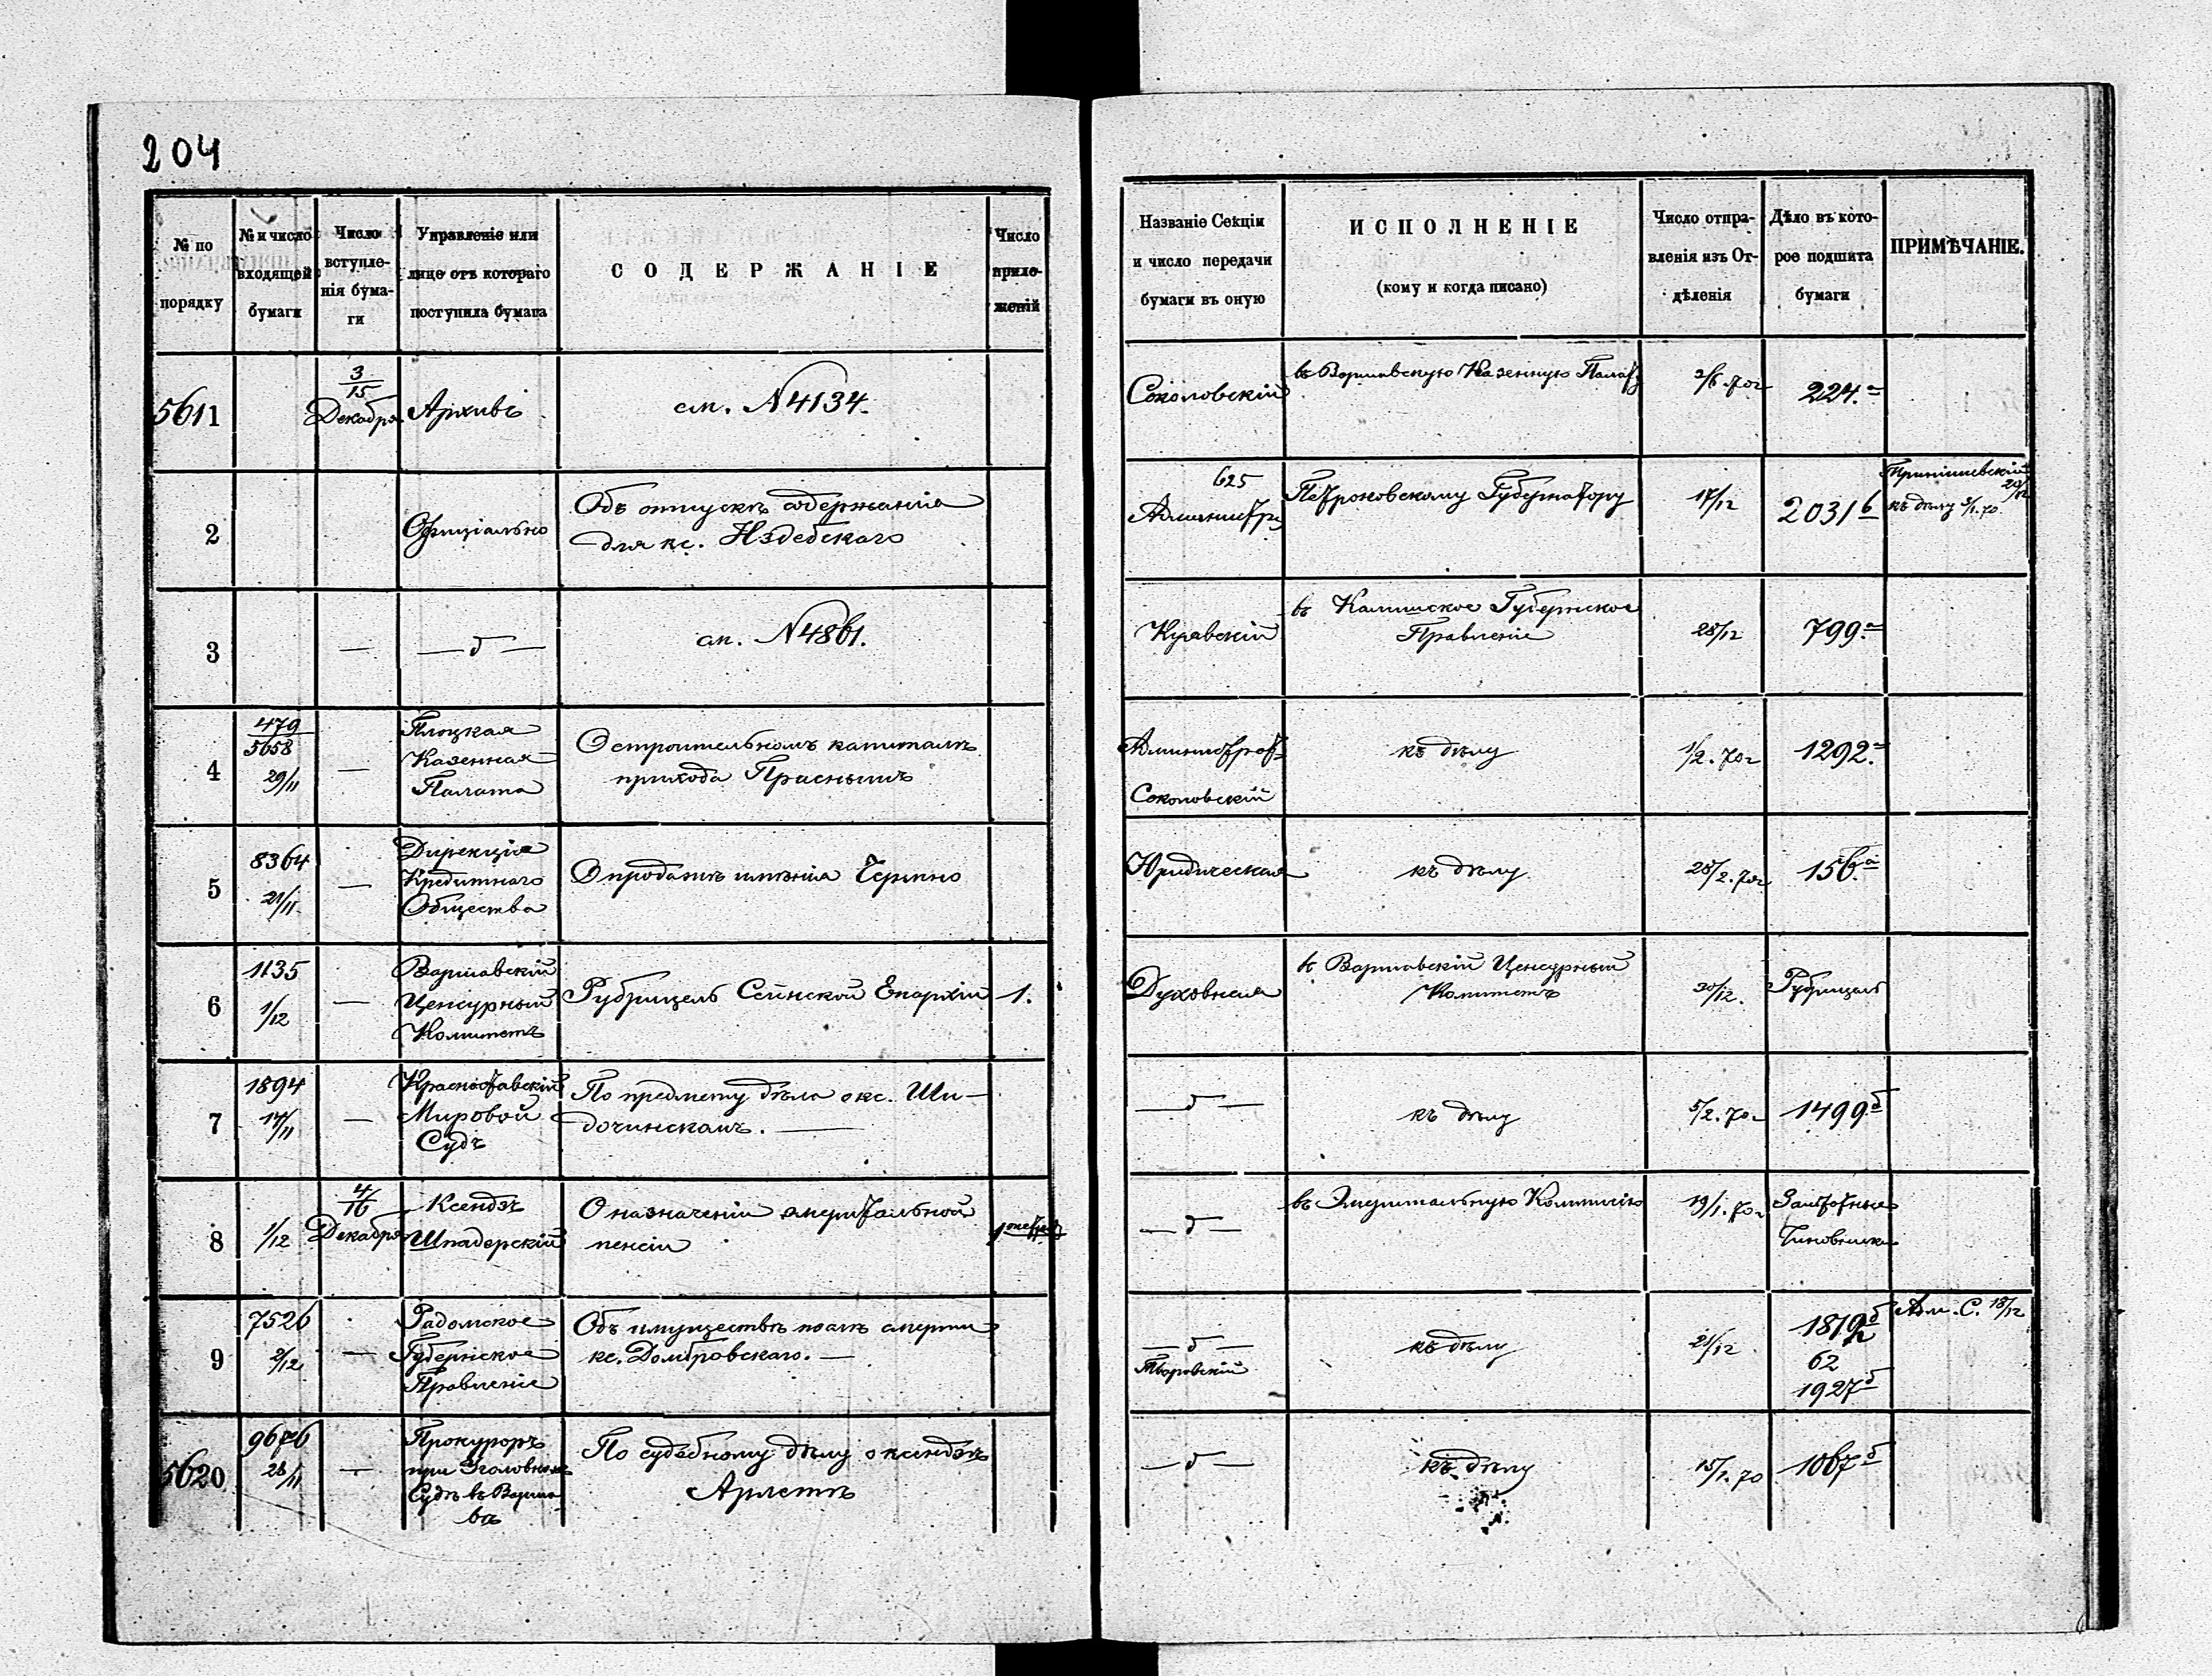 204
№ по порядку
№ и число входящей бумаги
Число вступленія бумаги
Управленіе или лице отъ котораго поступила бумага
СОДЕРЖАНІЕ
Число приложеній
Названіе Секціи и число передачи бумаги въ оную
ИСПОЛНЕНІЕ
(кому и когда писано)
Число отправленія изъ Отдѣленія
Дѣло въ которое подшита бумаги
ПРИМѢЧАНІЕ.
5611
3/15 Декабря
Архивъ
см. N4134.
Соколовскій
въ Варшавскую Казенную Палату
224.а
2
Офиціально
Объ отпускѣ содержанія
для кс. Издебскаго
625
Администр
Петроковскому Губернатору
17/12
2031б
къ дѣлу
3
—
— д —
см. N4861.
Куявскій
въ Калишское Губернское
Правленіе
28/12
799.а
4
479/5658
29/11
—
Плоцкая
Казенная
Палата
О строительномъ капиталѣ
прихода Праснышъ
Администрат
Соколовскій
къ дѣлу
1/2.70г
1292.а
5
8364
21/11
—
Дирекція
Кредитнаго
Общества
О продажѣ имѣнія Чернно
Юридическая
къ дѣлу
28/2.70г
156.а
6
1135
1/12
—
Варшавскій
Ценсурный
Комитетъ
Рубрицель Сейнской Епархіи
1.
Духовная
в Варшавскій Ценсурный
Комитетъ
30/12.
Рубрицель
7
1894
17/11
—
Красноставскій
Мировой
Судъ
По предмету дѣла о кс. Ши-
дочинскомъ. —
— д —
къ дѣлу
5/2.70г
1499.б
8
1/12
4/16 Декабря
Ксендзъ
Шпадерскій
О назначеніи эмеритальной
пенсіи
1
— д —
въ Эмеритальную Коммисію
19/1.70г
Заштатные
Чиновники
9
7526
2/12
—
Радомское
Губернское
Правленіе
Объ имуществѣ послѣ смерти
кс. Домбровскаго. —
— д —
Творовскій
къ дѣлу
21/12
62
1927б
Адм. С. 18/12
5620
9676
28/11
—
Прокуроръ
при Уголовномъ
Судѣ въ Варша-
вѣ
По судебному дѣлу о ксендзѣ
Арлетѣ
— д —
къ дѣлу
15/1.70
1067б